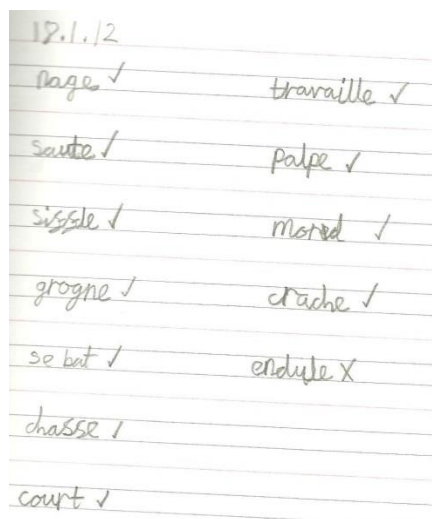 18.1.12
nage ✓
saute ✓
sissle ✓
grogne ✓
se bat ✓
chasse ✓
court ✓
travaille ✓
palpe ✓
mord ✓
crache ✓
endule X